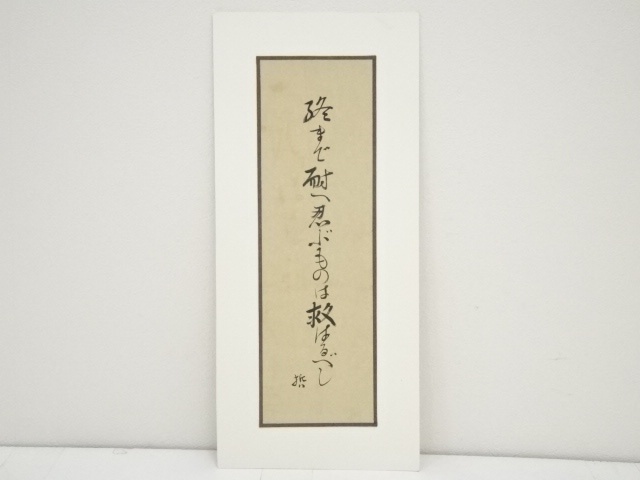 終まで耐へ忍ぶものは救はるべし
哲